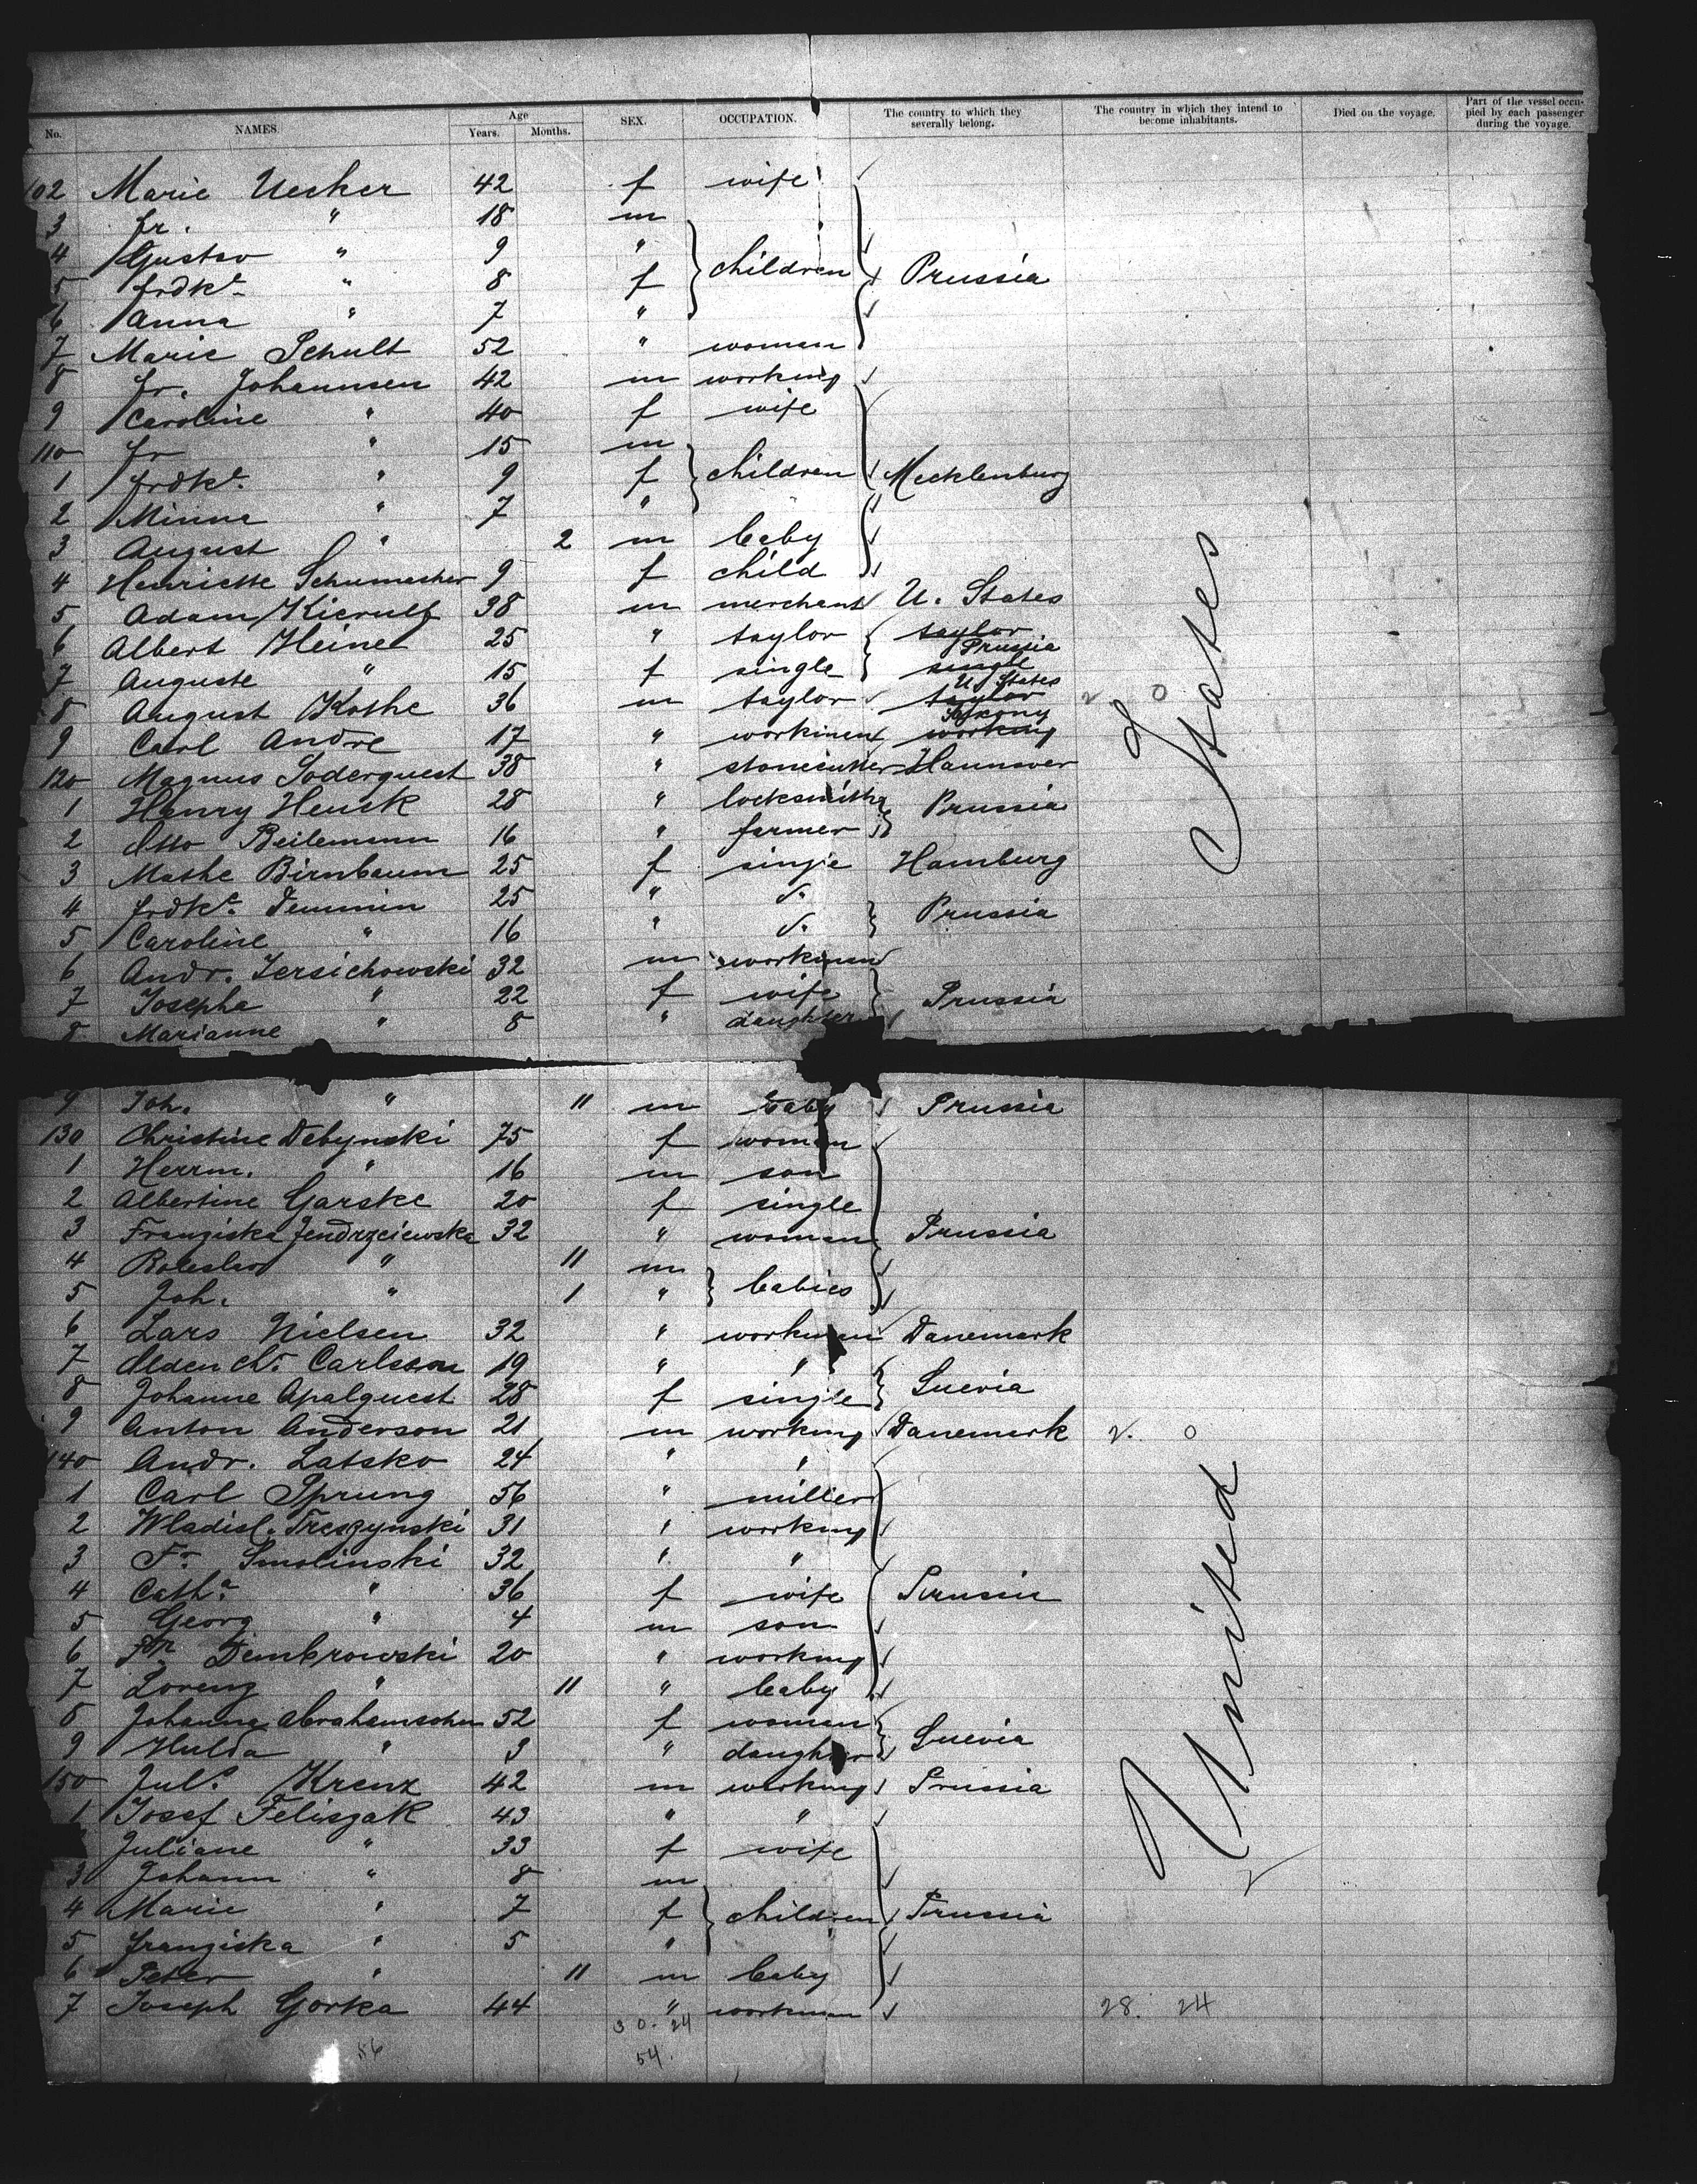 No. NAMES. Age Years. Months. SEX. OCCUPATION. The country to which they severally belong. The country in which they intend to become inhabitants. Died on the voyage. Part of the vessel occupied by each passenger during the voyage.
102 Marie Uecker 42 f wife
3 Fr. " 18 m
4 Gustav " 9 " children
5 Frdke. " 8 f Prussia
6 Anna " 7 "
7 Marie Schult 52 " woman
8 Fr. Johannsen 42 m working
9 Caroline " 40 f wife
110 Fr " 15 m
1 Frdke. " 9 f children Mecklenburg
2 Minna " 7 "
3 August " 2 m baby
4 Henriette Schumacher 9 f child
5 Adam Kierulf 38 m merchant U. States
6 Albert Heine 25 " taylor taylor Prussia
7 Auguste " 15 f single single
8 August Kothe 36 m taylor U. States taylor
9 Carl Andre 17 " workmen Saxony working
120 Magnus Soderquest 38 " stonecutter Hannover
1 Henry Heusk 28 " locksmith Prussia
2 Otto Beilemann 16 " farmer
3 Mathe Birnbaum 25 f single Hamburg
4 Frdke. Demmin 25 " d.
5 Caroline " 16 " d. Prussia
6 Andr. Jersichowski 32 m workman
7 Josepha " 22 f wife Prussia
8 Marianne " 8 " daughter
9 Joh. " 11 m baby Prussia
130 Christine Debynski 75 f woman
1 Herrm. " 16 m son
2 Albertine Garske 20 f single
3 Franziska Jendrzeiewska 32 " woman Prussia
4 Boleslav " 11 m
5 Joh. " 1 " babies
6 Lars Nielsen 32 " workman Danemark
7 Chr. Carlsson 19 " "
8 Johanne Apalquest 28 f single Suevia
9 Anton Anderson 21 m working Danemark 2. 0
140 Andr. Latsko 24 " "
1 Carl Sprung 56 " miller
2 Wladisl. Treszynski 31 " working
3 Fr. Smolinski 32 " "
4 Cathe. " 36 f wife Prussia
5 Georg " 4 m son
6 Fr. Dembrowski 20 " working
7 Lorenz " 11 " baby
8 Johanna Abrahamsohn 52 f woman
9 Hulda " 3 " daughter Suevia
150 Juls. Krenz 42 m working Prussia
1 Josef Feliszak 43 " "
Juliane " 33 f wife
3 Johann " 8 m
4 Marie " 7 f children Prussia
5 Franziska " 5 "
6 Peter " 11 m baby
7 Joseph Gorka 44 " workman 28. 24
30. 24
56 54.
United States